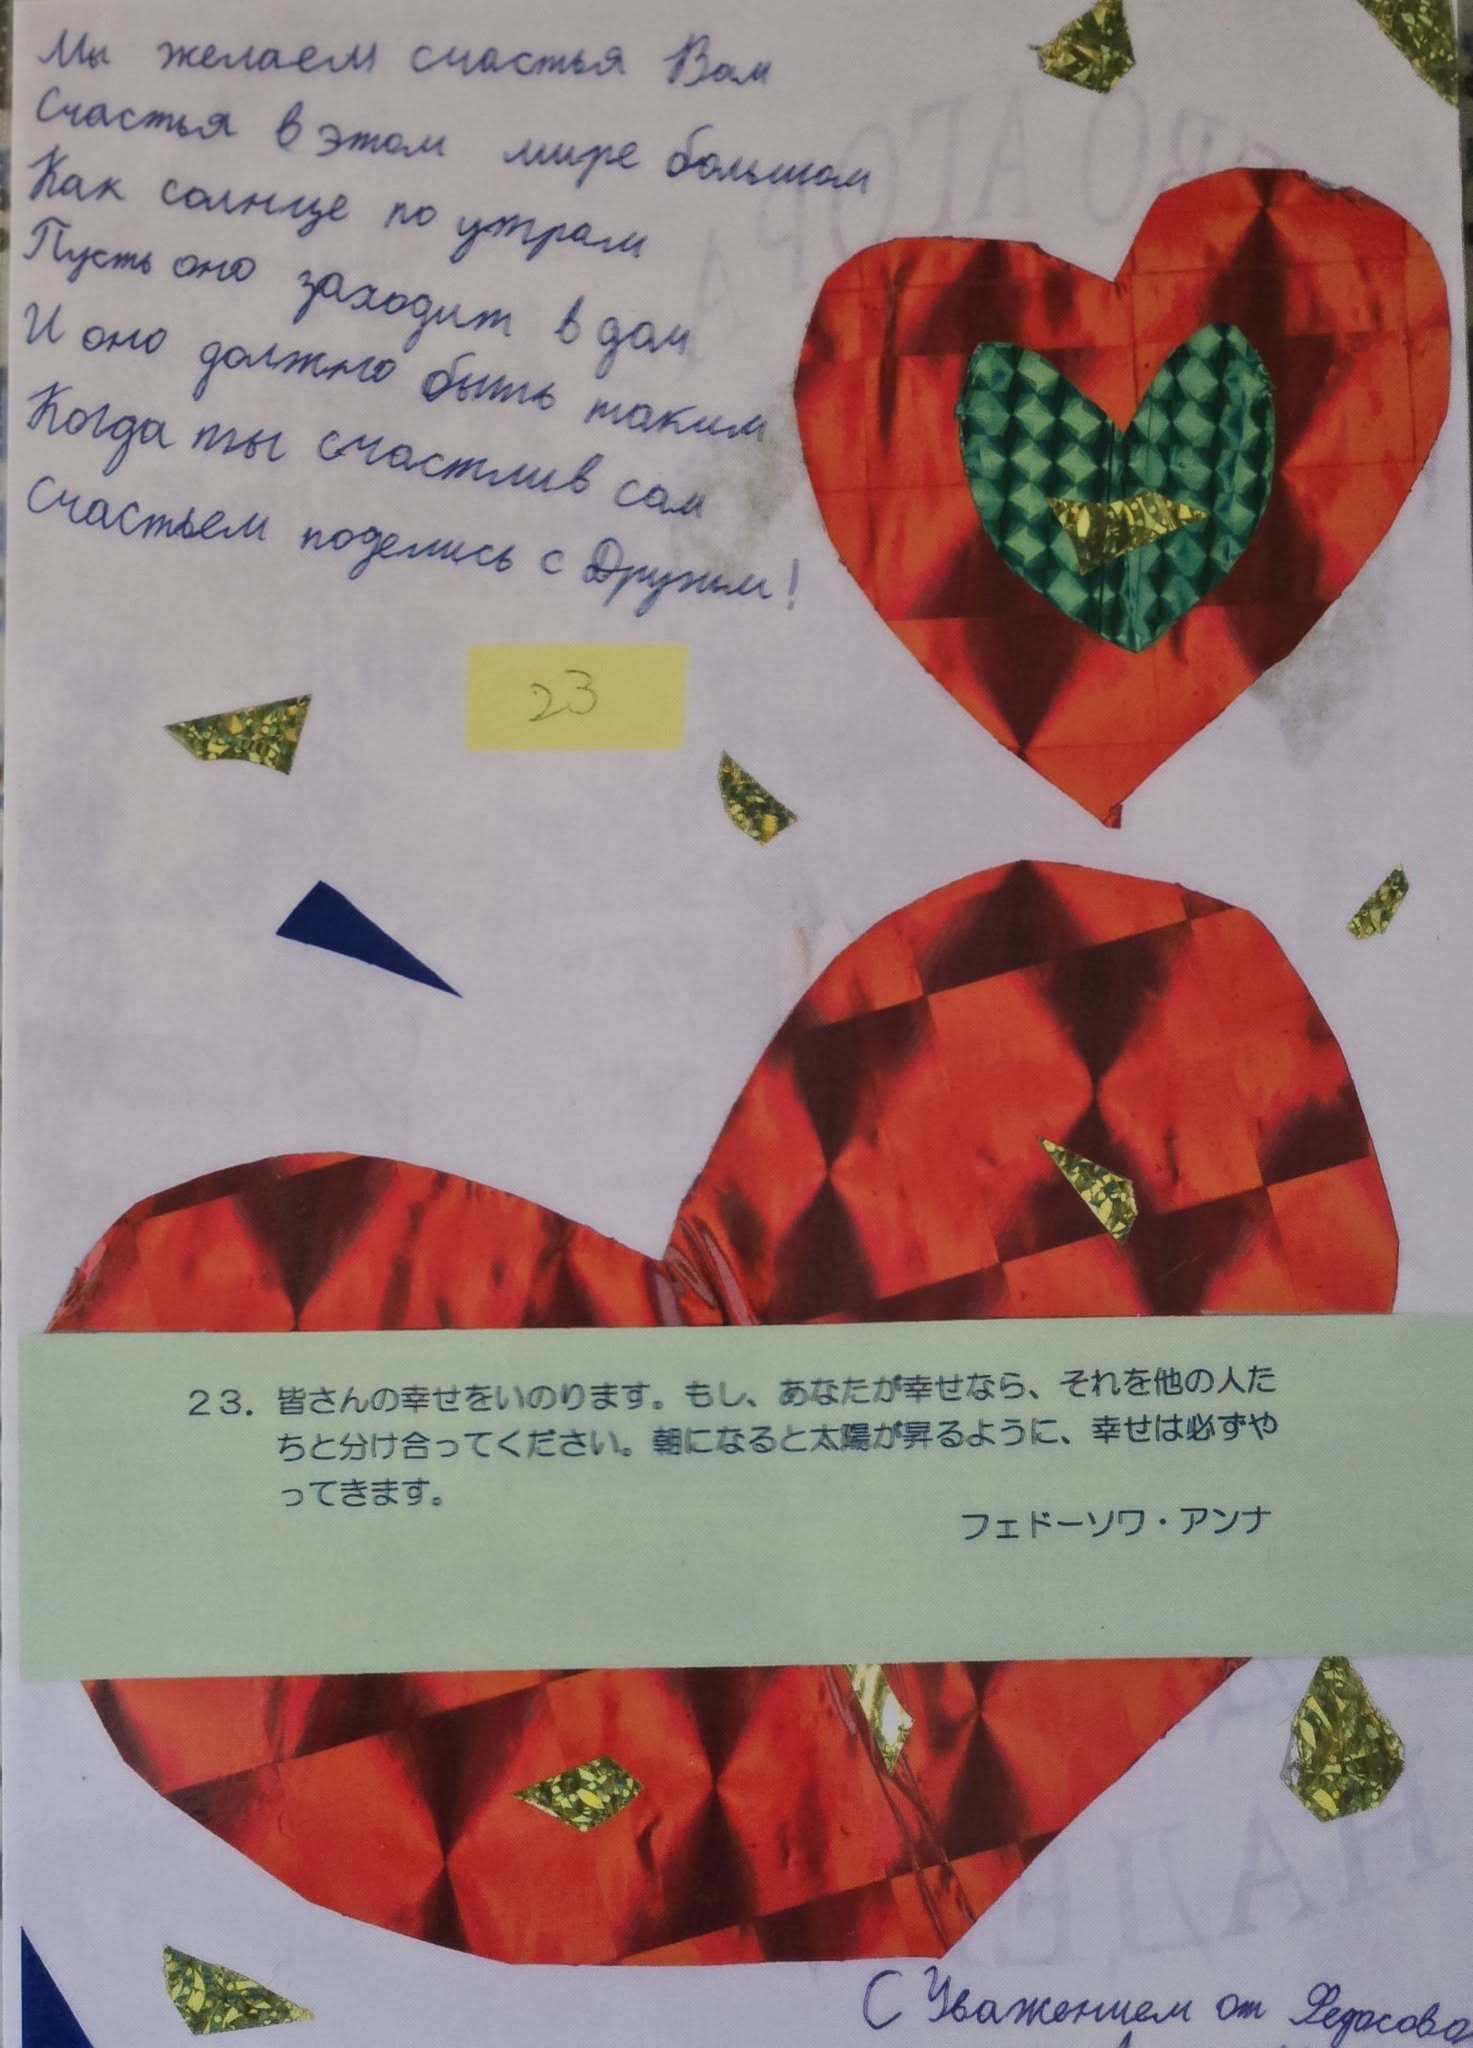 Мы желаем счастья Вам
Счастья в этом мире большом
Как солнце по утрам
Пусть оно заходит в дом
И оно должно быть таким
Когда ты счастлив сам
Счастьем поделись с Друзьм!
23
23. 皆さんの幸せをいのります。もし、あなたが幸せなら、それを他の人た
ちと分け合ってください。朝になると太陽が昇るように、幸せは必ずや
ってきます。
フェドーソワ・アンナ
С Уважением от Федосова